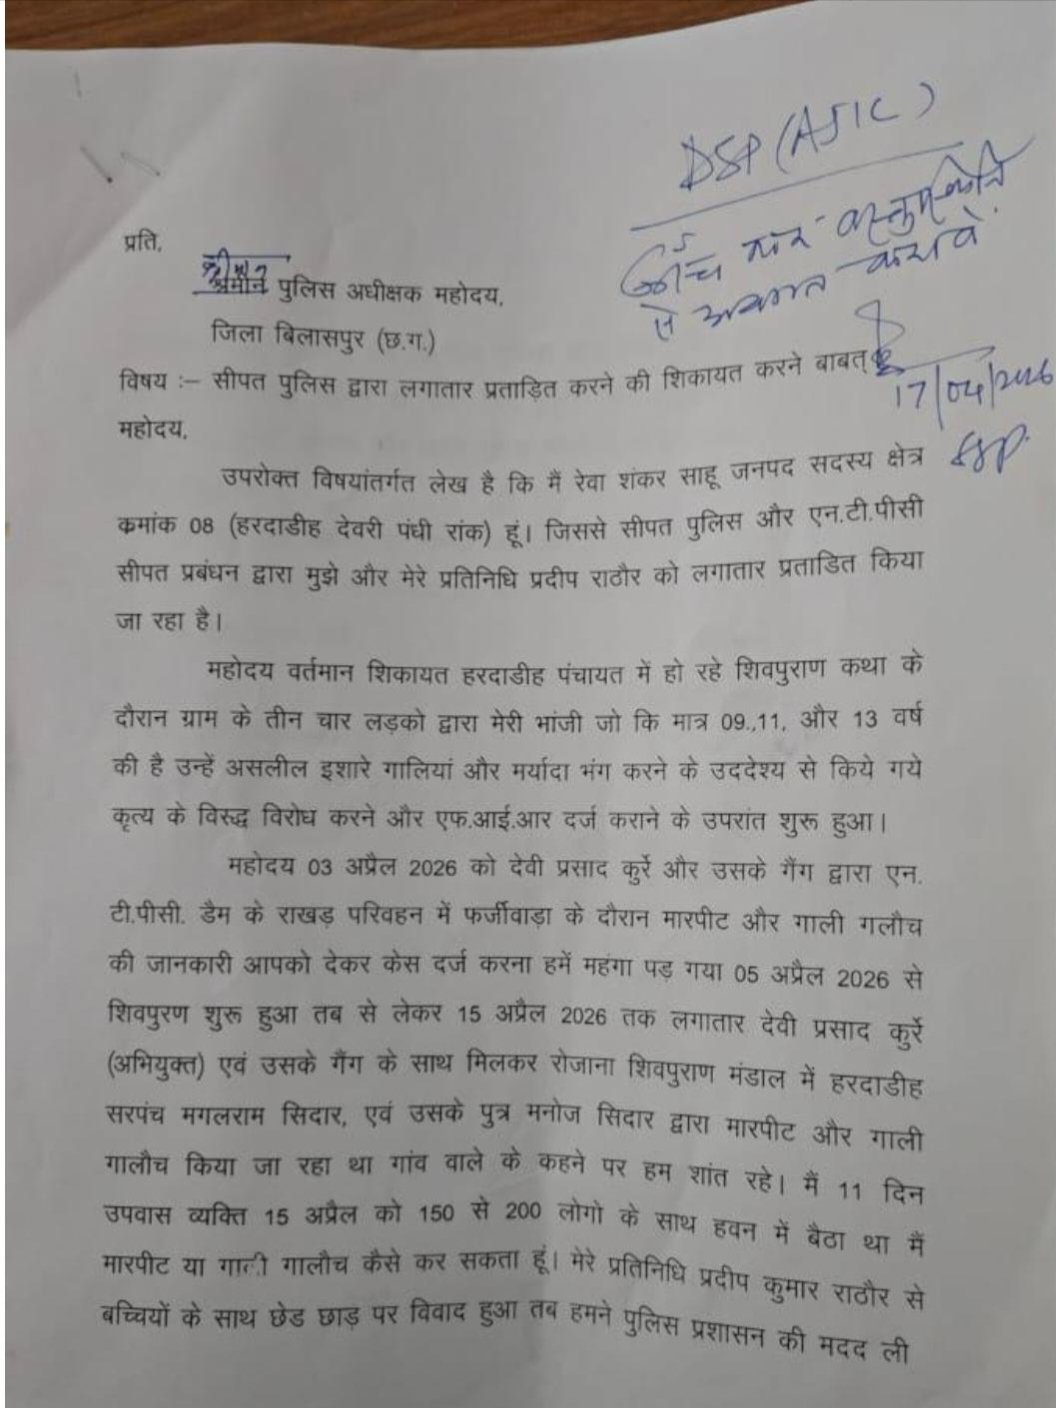 DSP (AJIC)
जाँच कर वस्तुस्थिति
से अवगत करावें
17/04/2026
SSP
प्रति,
श्रीमान
श्रीमान पुलिस अधीक्षक महोदय,
जिला बिलासपुर (छ.ग.)
विषय :– सीपत पुलिस द्वारा लगातार प्रताड़ित करने की शिकायत करने बाबत्
महोदय,
उपरोक्त विषयांतर्गत लेख है कि मैं रेवा शंकर साहू जनपद सदस्य क्षेत्र
क्रमांक 08 (हरदाडीह देवरी पंधी रांक) हूं। जिससे सीपत पुलिस और एन.टी.पीसी
सीपत प्रबंधन द्वारा मुझे और मेरे प्रतिनिधि प्रदीप राठौर को लगातार प्रताडित किया
जा रहा है।
महोदय वर्तमान शिकायत हरदाडीह पंचायत में हो रहे शिवपुराण कथा के
दौरान ग्राम के तीन चार लड़को द्वारा मेरी भांजी जो कि मात्र 09.,11, और 13 वर्ष
की है उन्हें असलील इशारे गालियां और मर्यादा भंग करने के उददेश्य से किये गये
कृत्य के विरुद्ध विरोध करने और एफ.आई.आर दर्ज कराने के उपरांत शुरू हुआ।
महोदय 03 अप्रैल 2026 को देवी प्रसाद कुर्रे और उसके गैंग द्वारा एन.
टी.पीसी. डैम के राखड़ परिवहन में फर्जीवाड़ा के दौरान मारपीट और गाली गलौच
की जानकारी आपको देकर केस दर्ज करना हमें महंगा पड़ गया 05 अप्रैल 2026 से
शिवपुरण शुरू हुआ तब से लेकर 15 अप्रैल 2026 तक लगातार देवी प्रसाद कुर्रे
(अभियुक्त) एवं उसके गैंग के साथ मिलकर रोजाना शिवपुराण मंडाल में हरदाडीह
सरपंच मगलराम सिदार, एवं उसके पुत्र मनोज सिदार द्वारा मारपीट और गाली
गालौच किया जा रहा था गांव वाले के कहने पर हम शांत रहे। मैं 11 दिन
उपवास व्यक्ति 15 अप्रैल को 150 से 200 लोगो के साथ हवन में बैठा था मैं
मारपीट या गाली गालौच कैसे कर सकता हूं। मेरे प्रतिनिधि प्रदीप कुमार राठौर से
बच्चियों के साथ छेड छाड़ पर विवाद हुआ तब हमने पुलिस प्रशासन की मदद ली